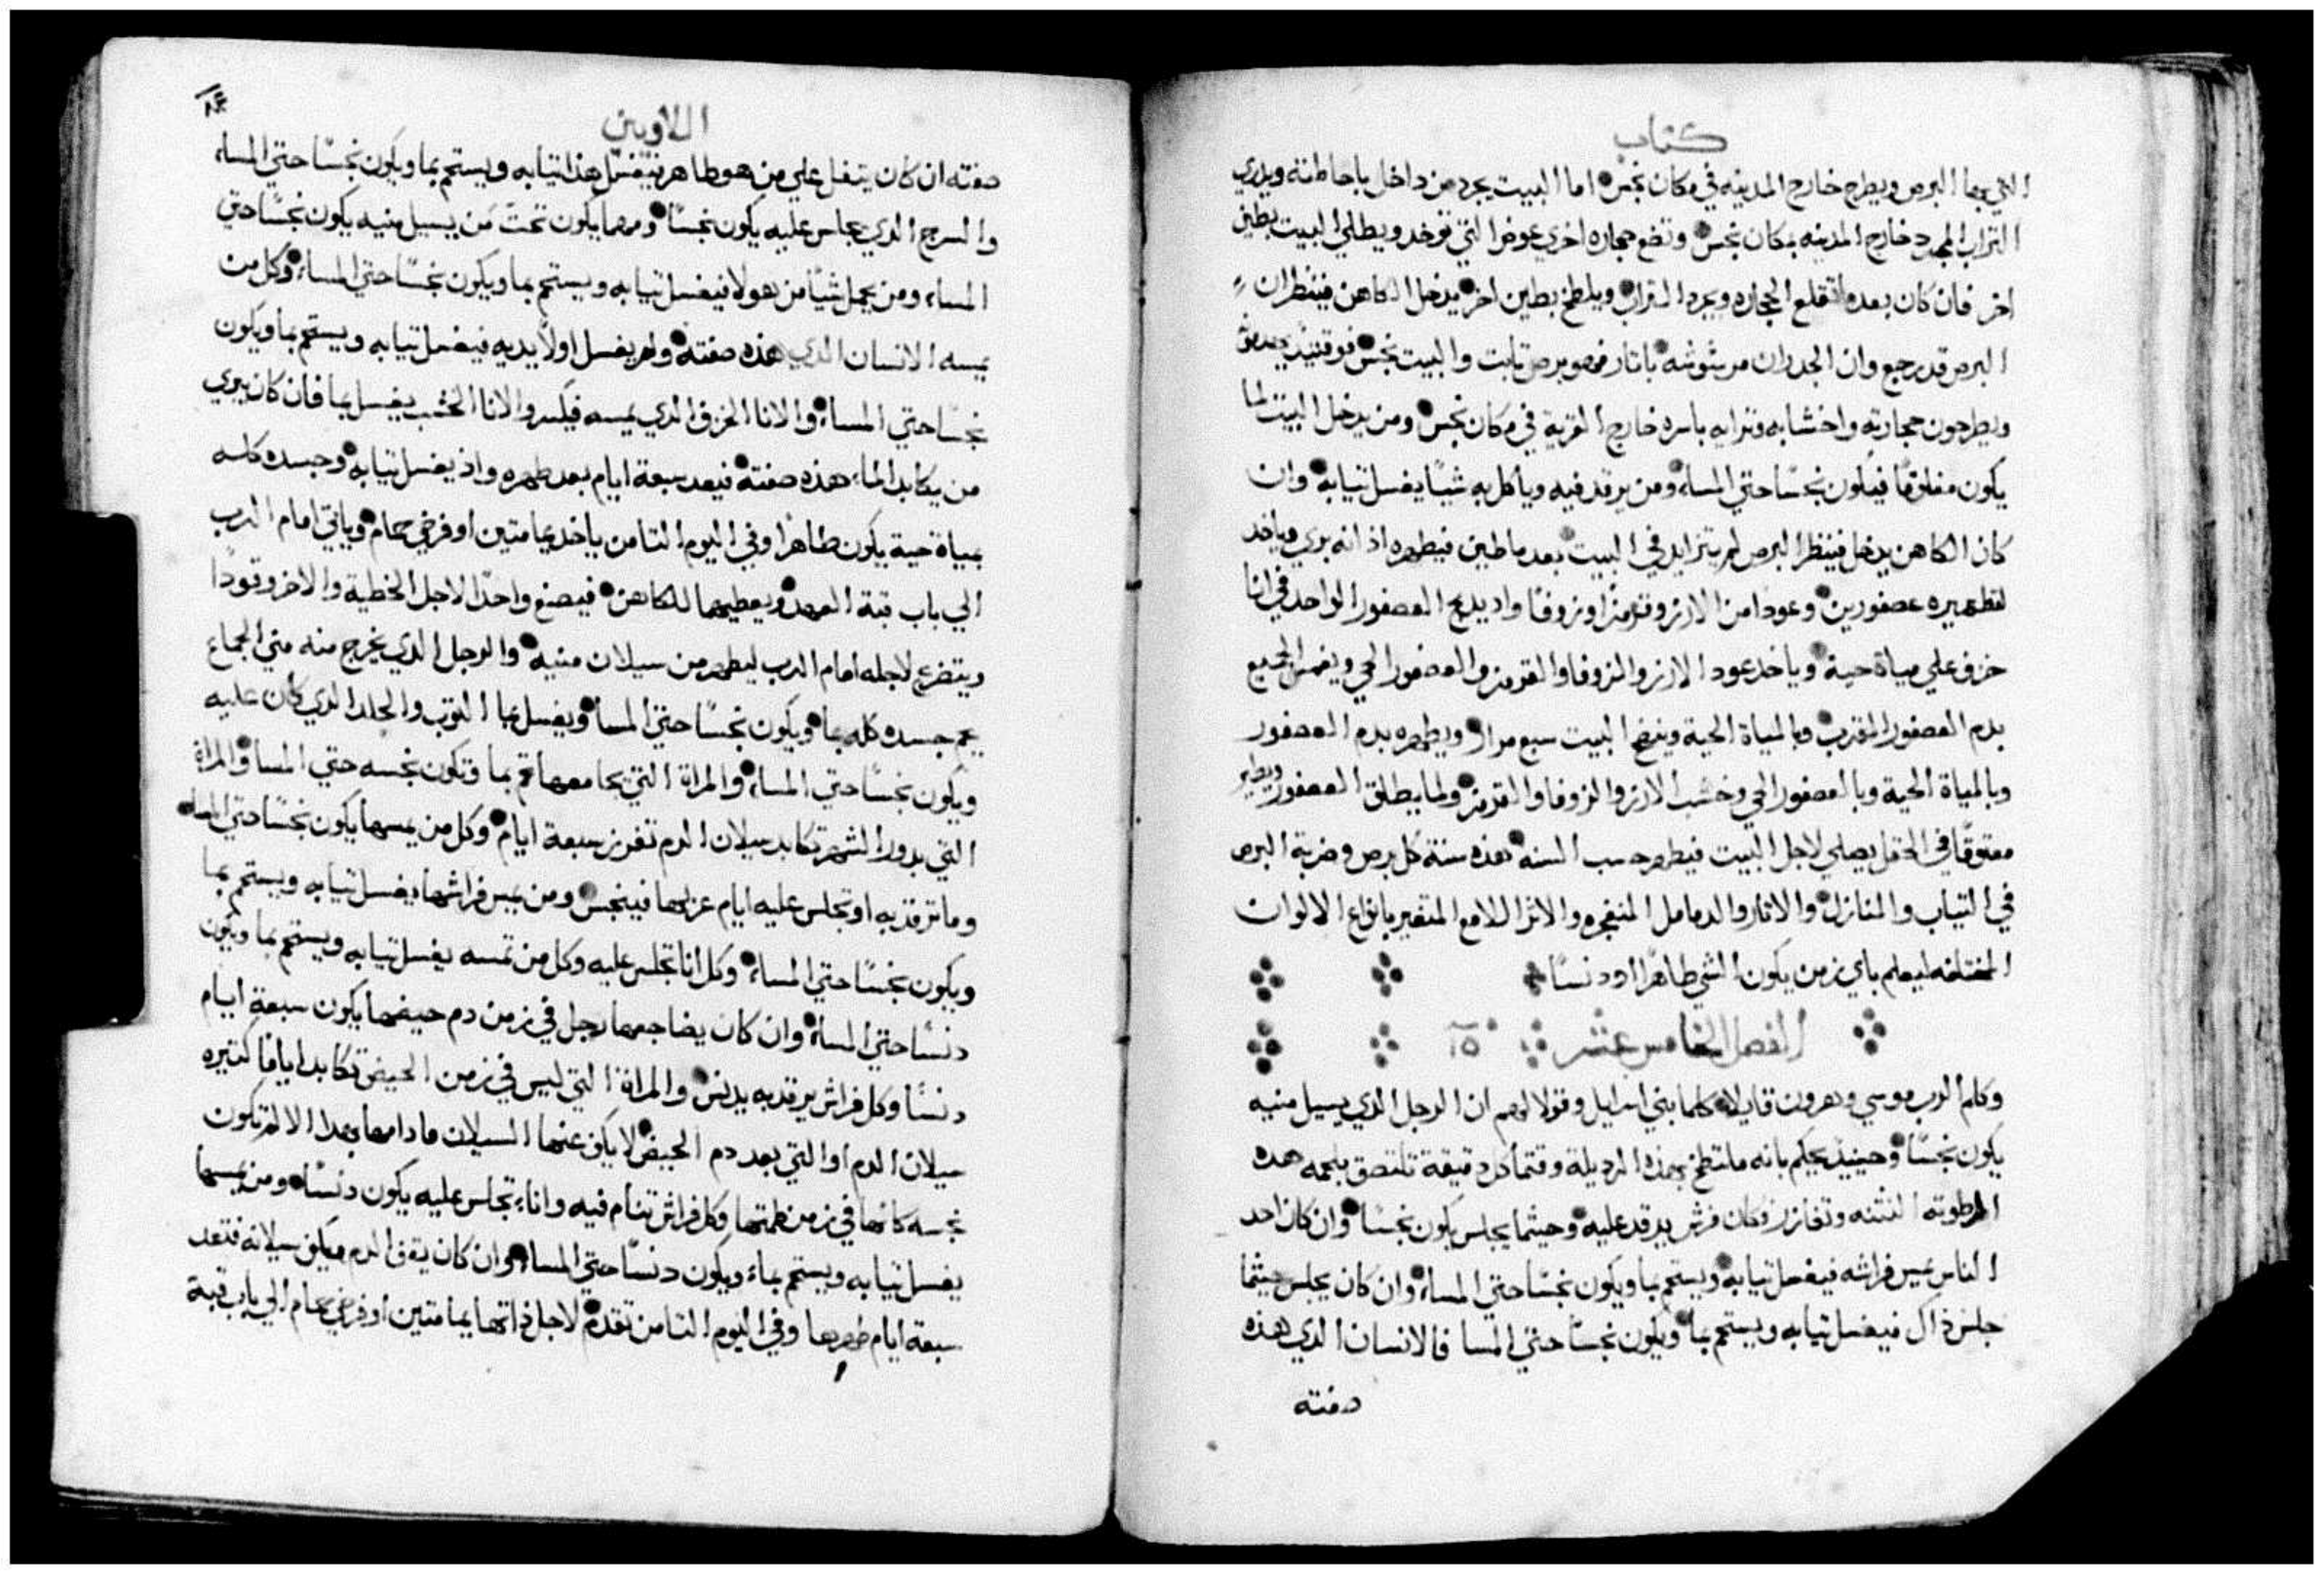 كتاب
التي بها البرص ويطرح خارج المدينه في مكان نجس اما البيت يجرد من داخل باحاطته ويدري
التراب المجرد خارج المدينه بمكان نجس وتضع حجاره اخري عوض التي توخد ويطلي البيت بطين
اخر فان كان بعد ما تقلع الحجاره ويجرد التراب ويلطخ بطين اخر يدخل الكاهن فينظر ان
البرص قد رجع وان الجدران مرشوشه باتار فهو برص تابت والبيت نجس فوقتيد
ويطرحون حجارته واخشابه وترابه باسره خارج القرية في مكان نجس ومن يدخل البيت لما
يكون مغلوقا فيكون نجسا حتي المساء ومن يرقد فيه وياكل به شيا يغسل تيابه وان
كان الكاهن يدخل فينظر البرص لم يتزايد في البيت بعد ما طين فيطهره اذ انه بري وياخد
لتطهيره عصفورين وعودا من الارز وقرمزا وزوفا واد يدبح العصفور الواحد في انا
خزف علي مياة حية وياخد عود الارز والزوفا والقرمز والعصفور الحي ويغمس الجميع
بدم العصفور المقرب وبالمياة الحية وينضح البيت سبع مرار ويطهره بدم العصفور
وبالمياة الحية وبالعصفور الحي وخشب الارز والزوفا والقرمز ولما يطلق العصفور ويطير
معتوقا في الحقل يصلي لاجل البيت فيطهر حسب السنه هذه سنة كل برص وضربة البرص
في التياب والمنازل والاتار والدمامل المنفجره والاتر اللامع المتغير بانواع الالوان
المختلفه ليعلم باي زمن يكون الشي طاهرا او دنسا
الفصل الخامس عشر ١٥
وكلم الرب موسي وهرون قايلا كلما بني اسرايل وقولا لهم ان الرجل الدي يسيل منيه
يكون نجسا وحينيد يحكم بانه ملتطخ بهذه الرديلة وقتما كل دقيقة تلتصق بلحمه هده
الرطوبة النتنه وكل فرش يرقد عليه وحيثما يجلس يكون نجسا وان كان احد
الناس يمس فراشه فيغسل تيابه ويستحم بما ويكون نجسا حتي المساء وان كان يجلس حيثما
جلس داك فيغسل تيابه ويستحم بما ويكون نجسا حتي المسا فالانسان الدي هذه
صفته
اللاويين
صفته ان كان يتفل علي من هو طاهر فيغسل هذا تيابه ويستحم بما ويكون نجسا حتي المساء
والسرج الدي يجلس عليه يكون نجسا ومهما يكون تحت من يسيل منيه يكون نجسا حتي
المساء ومن يحمل شيا من هولا فيغسل تيابه ويستحم بما ويكون نجسا حتي المساء وكل من
يمسه الانسان الدي هذه صفته ولم يغسل اولا يديه فيغسل تيابه ويستحم بما ويكون
نجسا حتي المساء والانا الخزف الدي يمسه فيكسر والانا الخشب يغسل بما فان كان يبري
من يكابد الماء هذه صفته فيعد سبعة ايام بعد طهره واذ يغسل تيابه وجسده كله
بمياة حية يكون طاهرا وفي اليوم التامن ياخد يمامتين او فرخي حمام وياتي امام الرب
الي باب قبة العهد ويعطيهما للكاهن فيصنع واحدا لاجل الخطية والاخر وقودا
ويتضرع لاجله امام الرب ليطهر من سيلان منيه والرجل الدي يخرج منه مني الجماع
يحم جسده كله بما ويكون نجسا حتي المسا ويغسل بما التوب والجلد الدي كان عليه
ويكون نجسا حتي المساء والمراة التي يجامعها تحم بما وتكون نجسه حتي المسا والمراة
التي بدور الشهر تكابد سيلان الدم تفرز سبعة ايام وكل من يمسها يكون نجسا حتي المساء
وما ترقد به او تجلس عليه ايام عزلها فينجس ومن يمس فراشها يغسل تيابه ويستحم بما
ويكون نجسا حتي المساء وكل انا تجلس عليه وكل من تمسه يغسل تيابه ويستحم بما ويكون
دنسا حتي المساء وان كان يضاجعها رجل في زمن دم حيضها يكون سبعة ايام
دنسا وكل فراش يرقد به يدنس والمراة التي ليس في زمن الحيض تكابد اياما كتيره
سيلان الدم او التي بعد دم الحيض لا يكف عنها السيلان ما دامها بهدا الالم تكون
نجسه كانها في زمن طمتها وكل فراش تنام فيه واناء تجلس عليه يكون دنسا ومن يمسها
يغسل تيابه ويستحم بماء ويكون دنسا حتي المساء وان كان يقف الدم ويكف سيلانه فتعد
سبعة ايام طهرها وفي اليوم التامن تقدم لاجل ذاتها يمامتين او فرخي حمام الي باب قبة